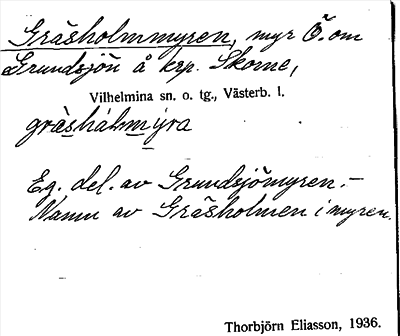 Gräsholmmyren, myr Ö. om
Grundsjön å krp. Skorne,
Vilhelmina sn. o. tg., Västerb. l.
gräshálmmýra
Eg. del. av Grundsjömyren.-
Namn av Gräsholmen i myren.
Thorbjörn Eliasson, 1936.